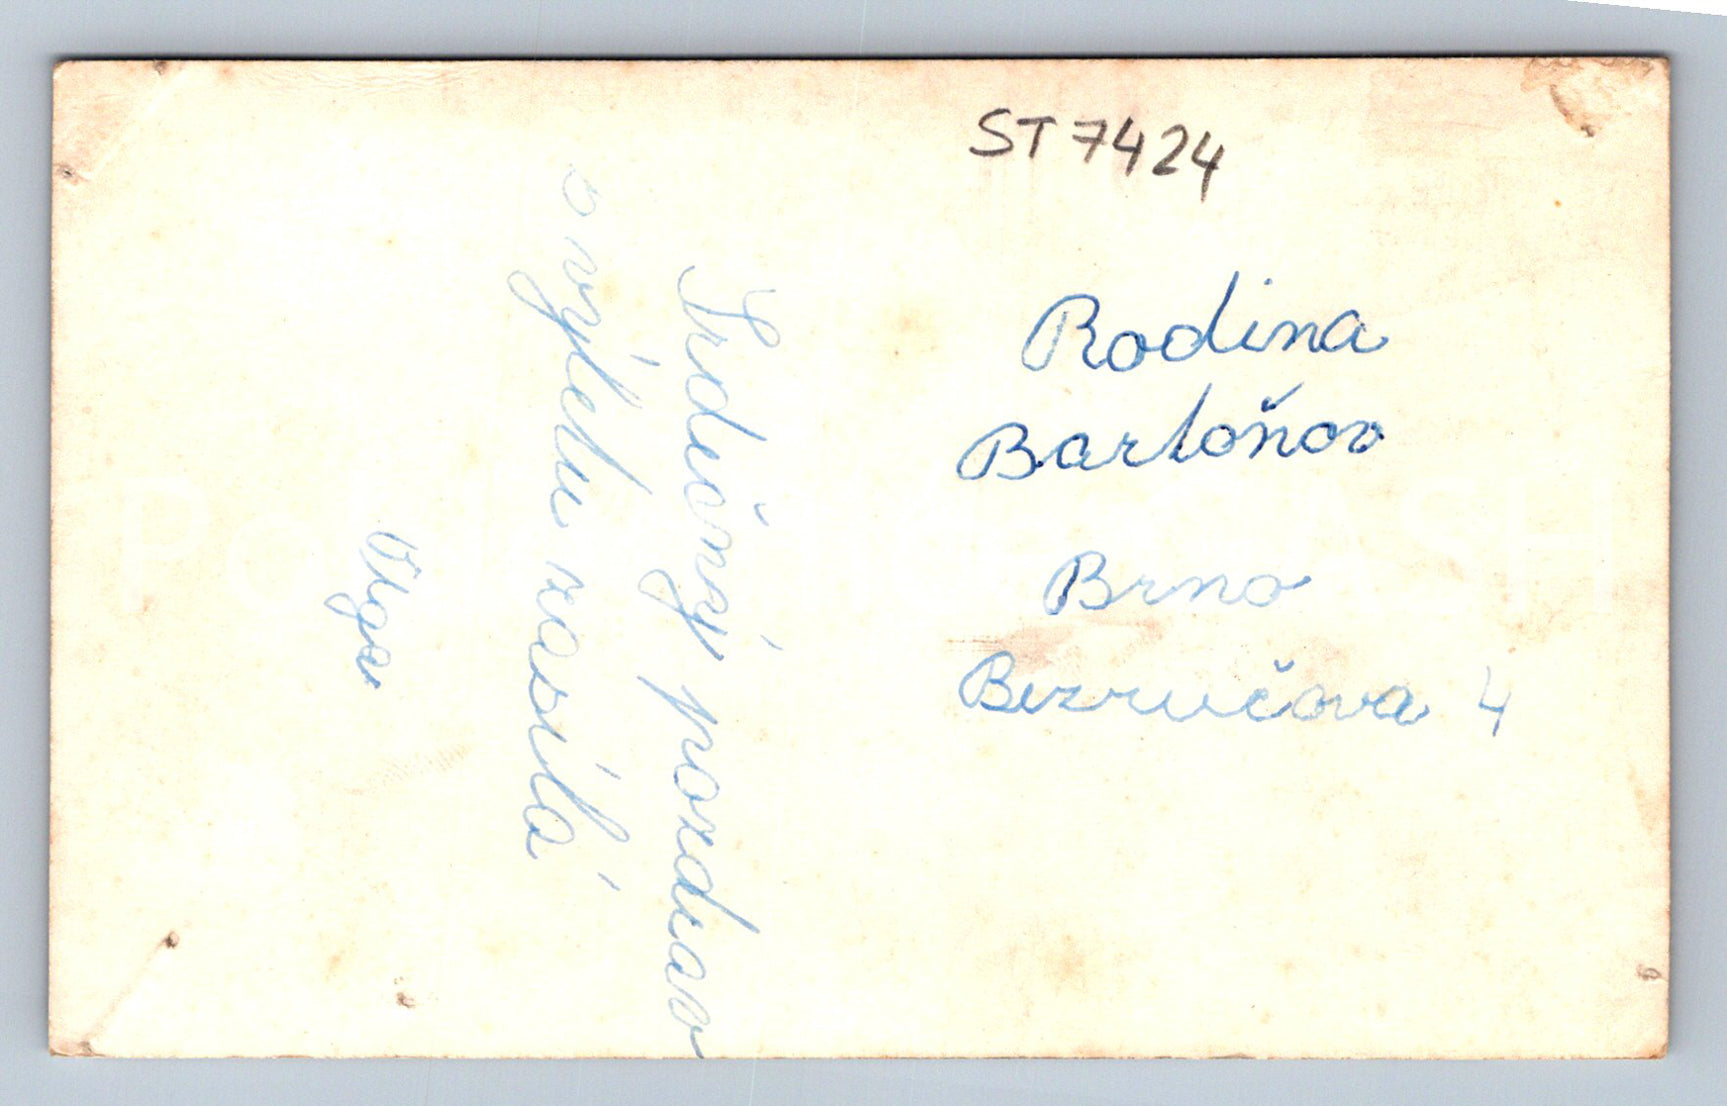 ST 7424
Srdečný pozdrav
s výletu zasílá
Olga
Rodina
Bartoňov
Brno
Bezručova 4